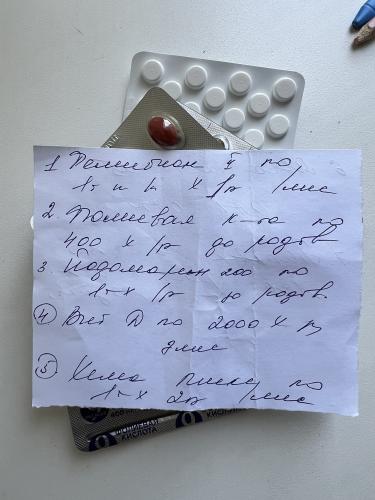 1 Фемибион 1 по
1т и к х 1р /мес
2. Фолиевая к-та по
400 х 1р до родов
3 Йодомарин 200 по
1т х 1р до родов.
④ Вит Д по 2000 х 1р
мес
⑤ по
1т х 2р 1мес
400
ФОЛИЕВАЯ
КИСЛОТА